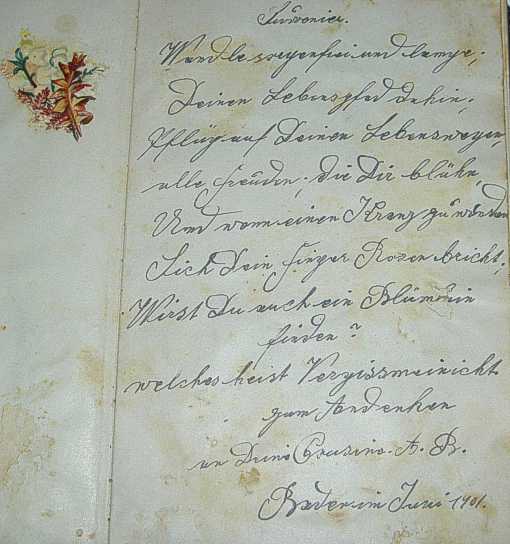 Wandle sorgenfrei und lange,
Deinen Lebenspfad dahin,
Pflück auf Deinen Lebenswegen,
alle Freuden, die Dir blühn,
Und wenn einen Kranz zu winden
Sich Dein Finger Rosen bricht,
Wirst Du auch ein Blümlein
finden?
welches heist Vergissmeinicht
zum Andenken
an Deine Cousine. A. R.
Baden im Juni 1901.